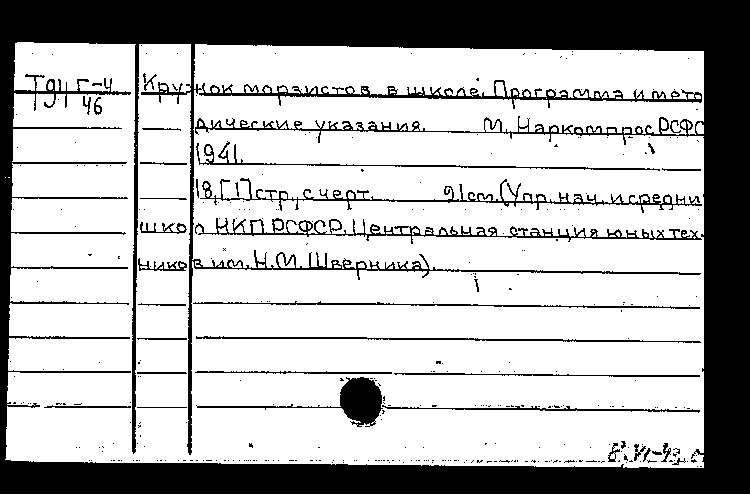 Т941 Г-4
46
Кружок морзистов в школе. Программа и мето
дические указания. М., Наркомпрос РСФС
1941.
18,[1] стр., с черт. 21 cm. (Упр. нач. и средни
школ НКП РСФСР. Центральная станция юных тех-
ников им. Н.М. Шверника).